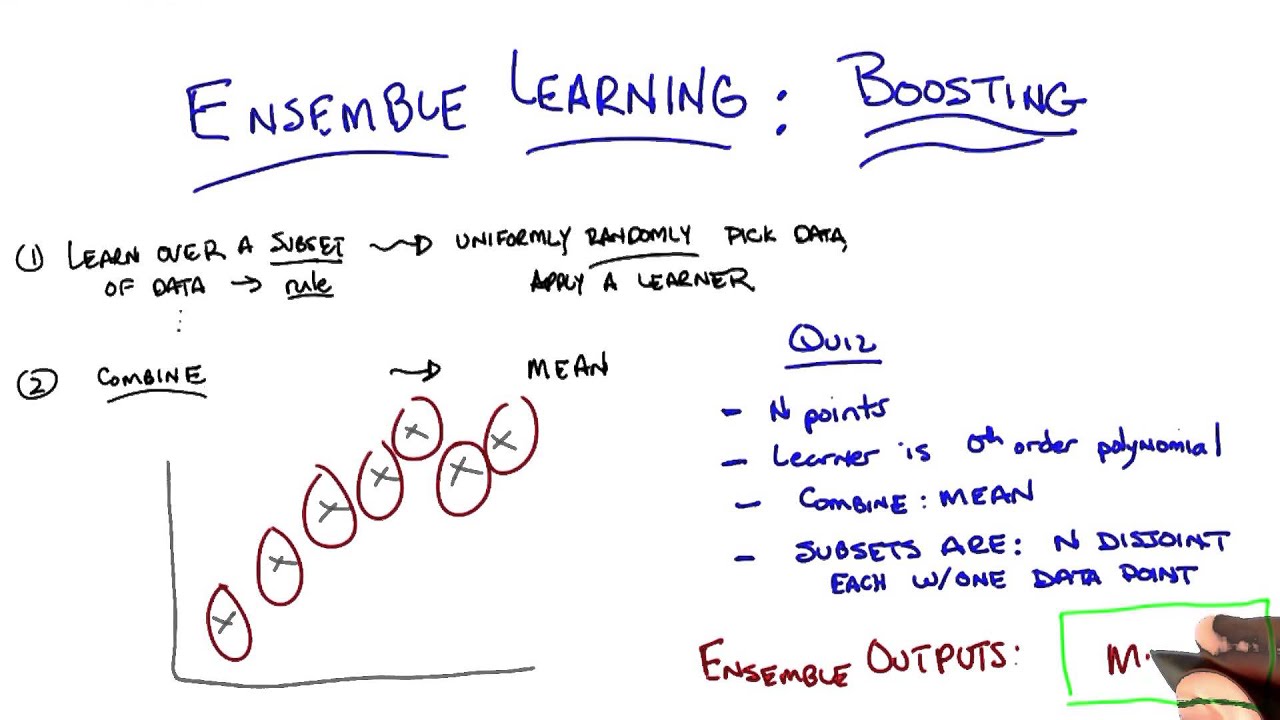 ENSEMBLE LEARNING: BOOSTING
① LEARN OVER A SUBSET ⟿ UNIFORMLY RANDOMLY PICK DATA,
OF DATA → rule APPLY A LEARNER
⋮
② COMBINE ⟿ MEAN
QUIZ
- N points
- Learner is 0th order polynomial
- COMBINE: MEAN
- SUBSETS ARE: N DISJOINT
EACH W/ONE DATA POINT
ENSEMBLE OUTPUTS: M